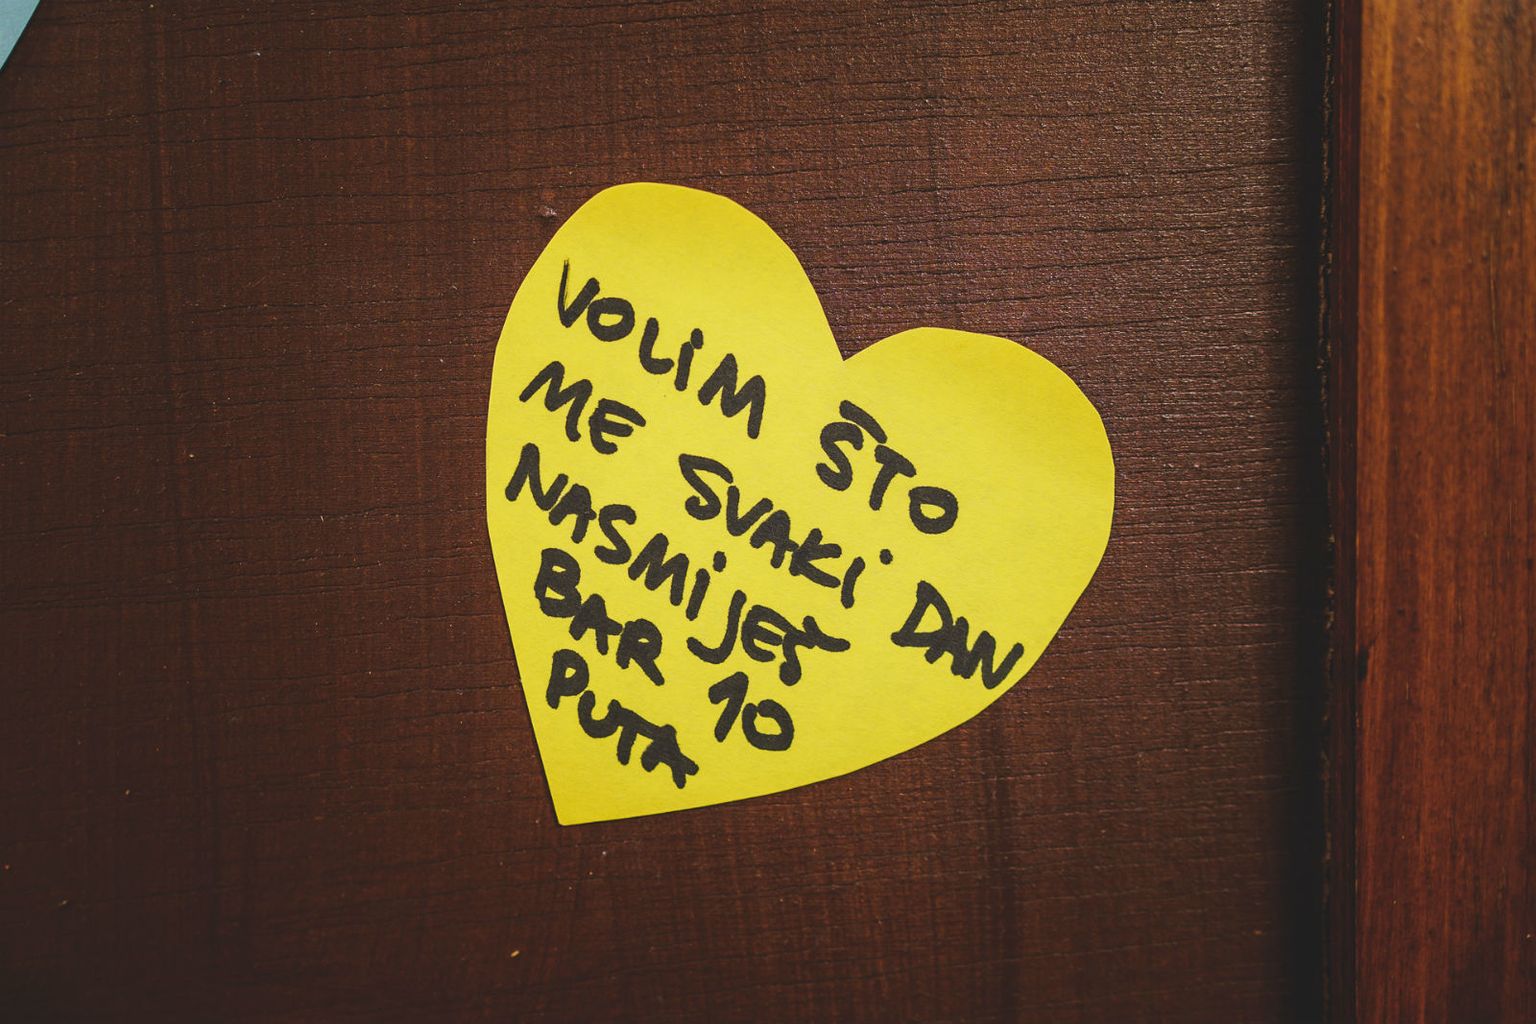 VOLIM ŠTO
ME SVAKI DAN
NASMIJEŠ
BAR 10
PUTA